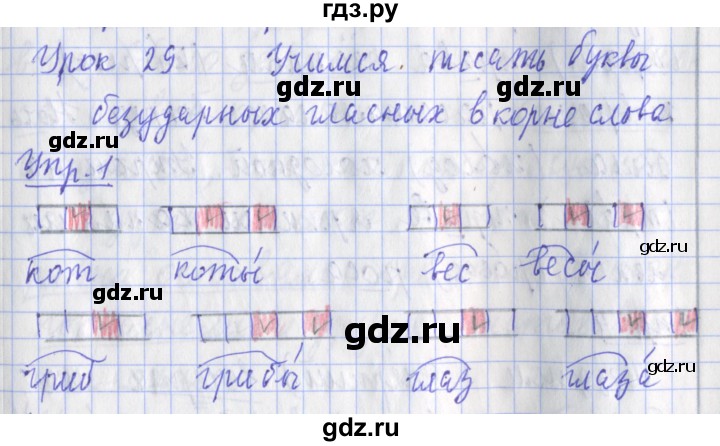 гдз.ру
Урок 29. Учимся писать буквы
безударных гласных в корне слова.
Упр. 1
кот коты́ вес весы́
гриб грибы́ глаз глаза́
gdz.ru gdz.ru
gdz.ru gdz.ru
gdz.ru gdz.ru
gdz.ru gdz.ru gdz.ru
gdz.ru gdz.ru